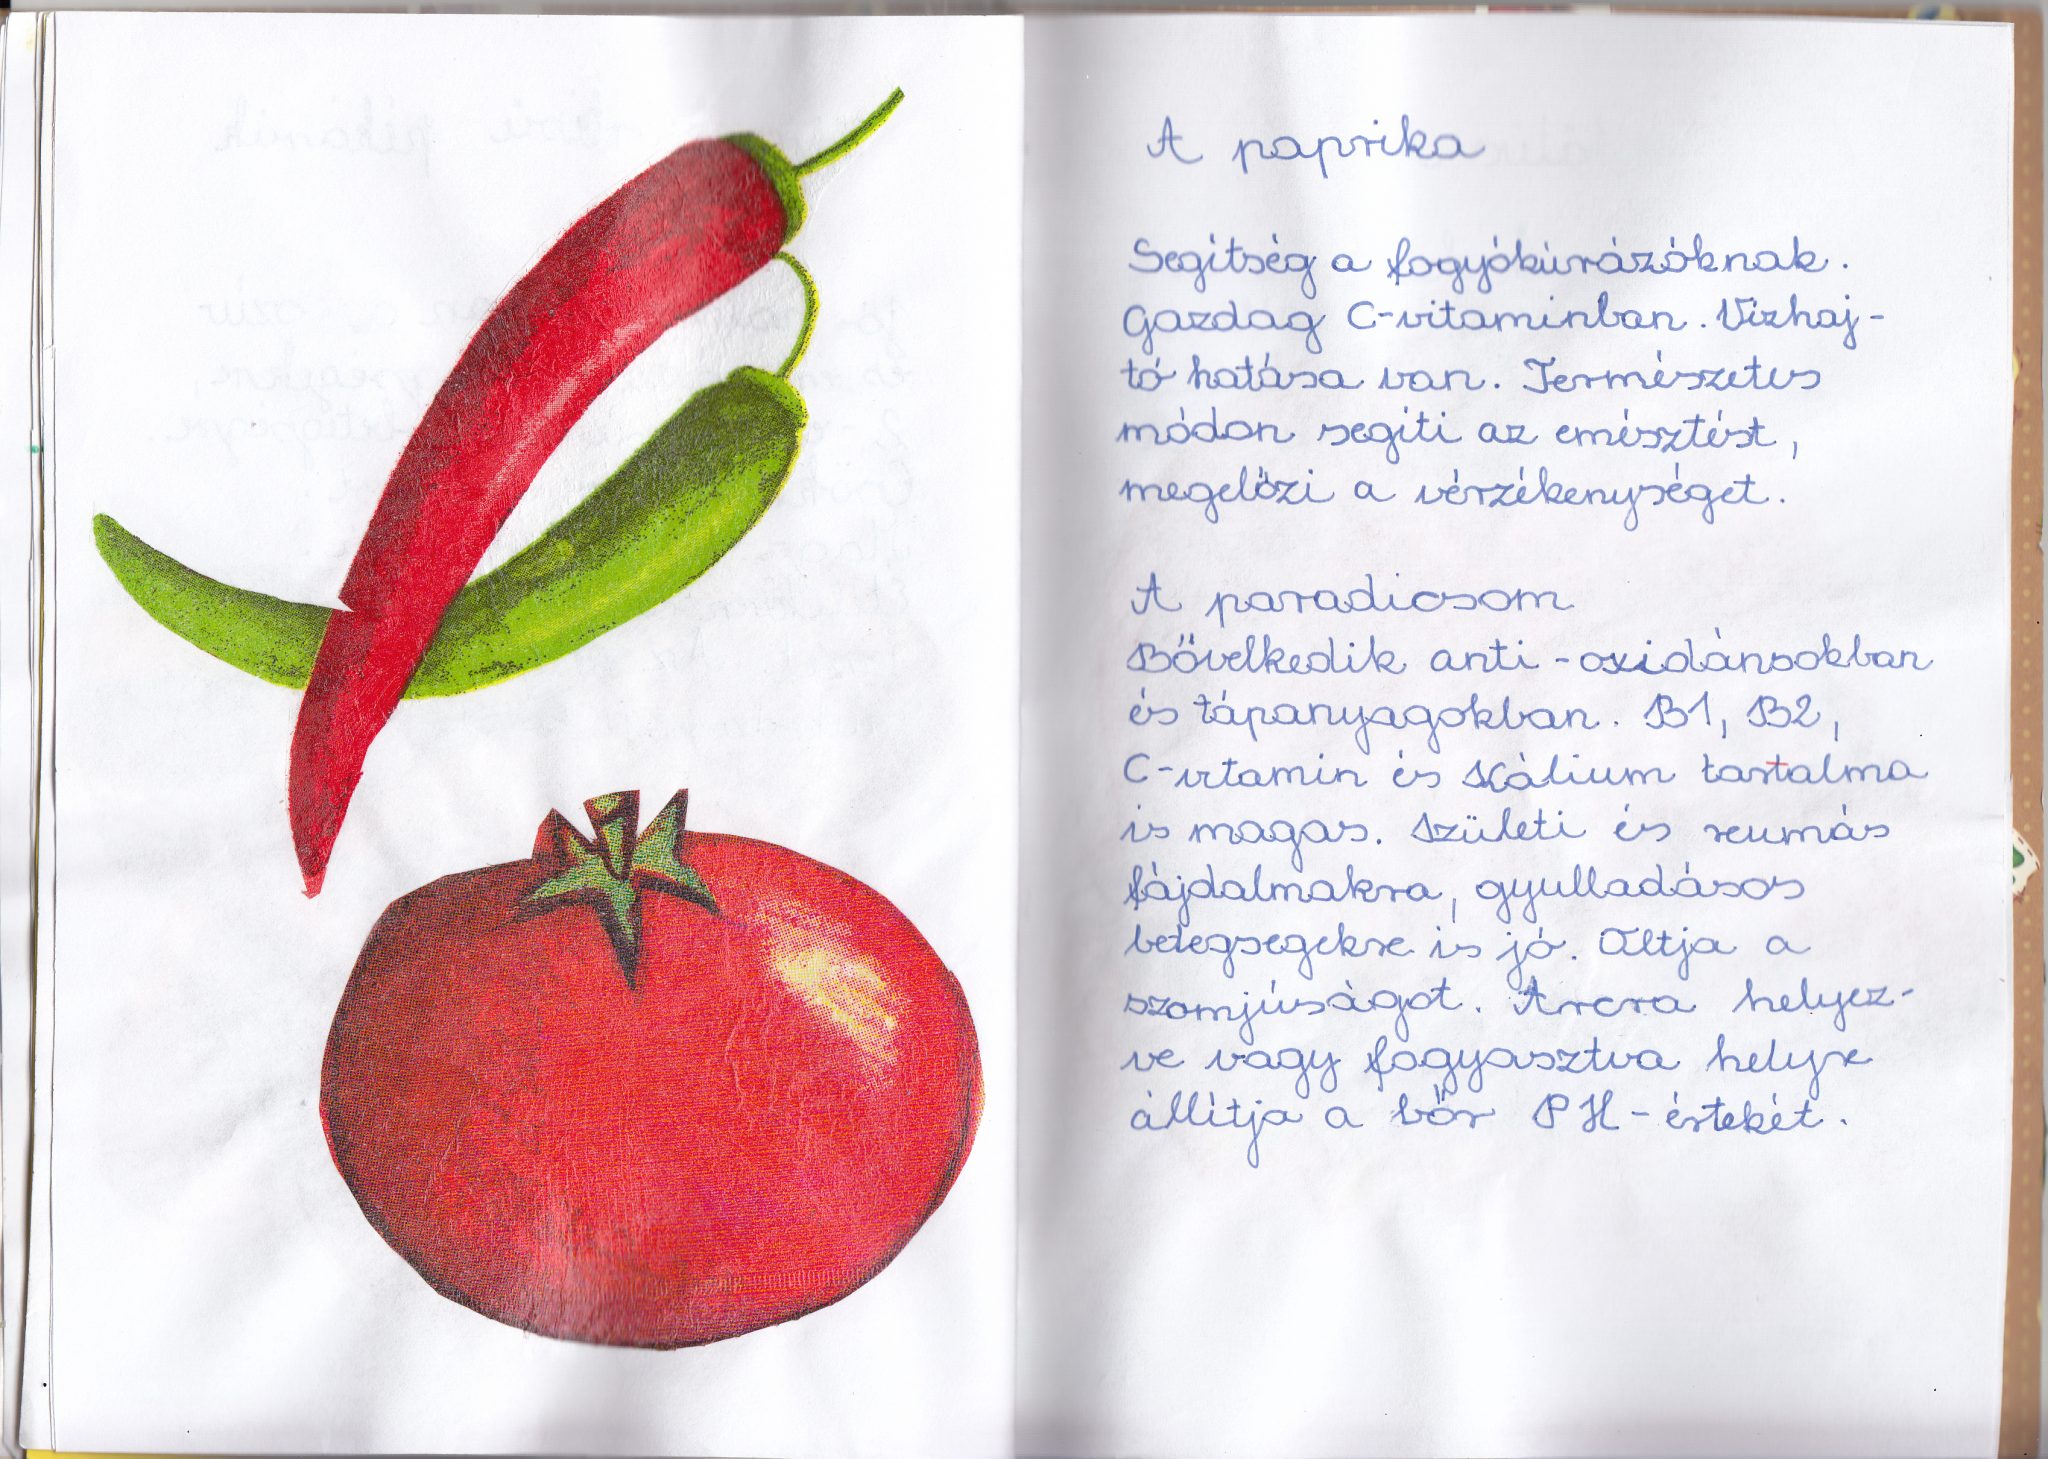 A paprika
Segítség a fogyókúrázóknak.
Gazdag C-vitaminban. Vizhaj-
tó hatása van. Természetes
módon segiti az emésztést,
megelőzi a vérzékenységet.
A paradicsom
Bővelkedik anti-oxidánsokban
és tápanyagokban. B1, B2,
C-vitamin és Kálium tartalma
is magas. Izületi és reumás
fájdalmakra, gyulladásos
betegségekre is jó. Oltja a
szomjúságot. Arcra helyez-
ve vagy fogyasztva helyre
állítja a bőr PH-értekét.